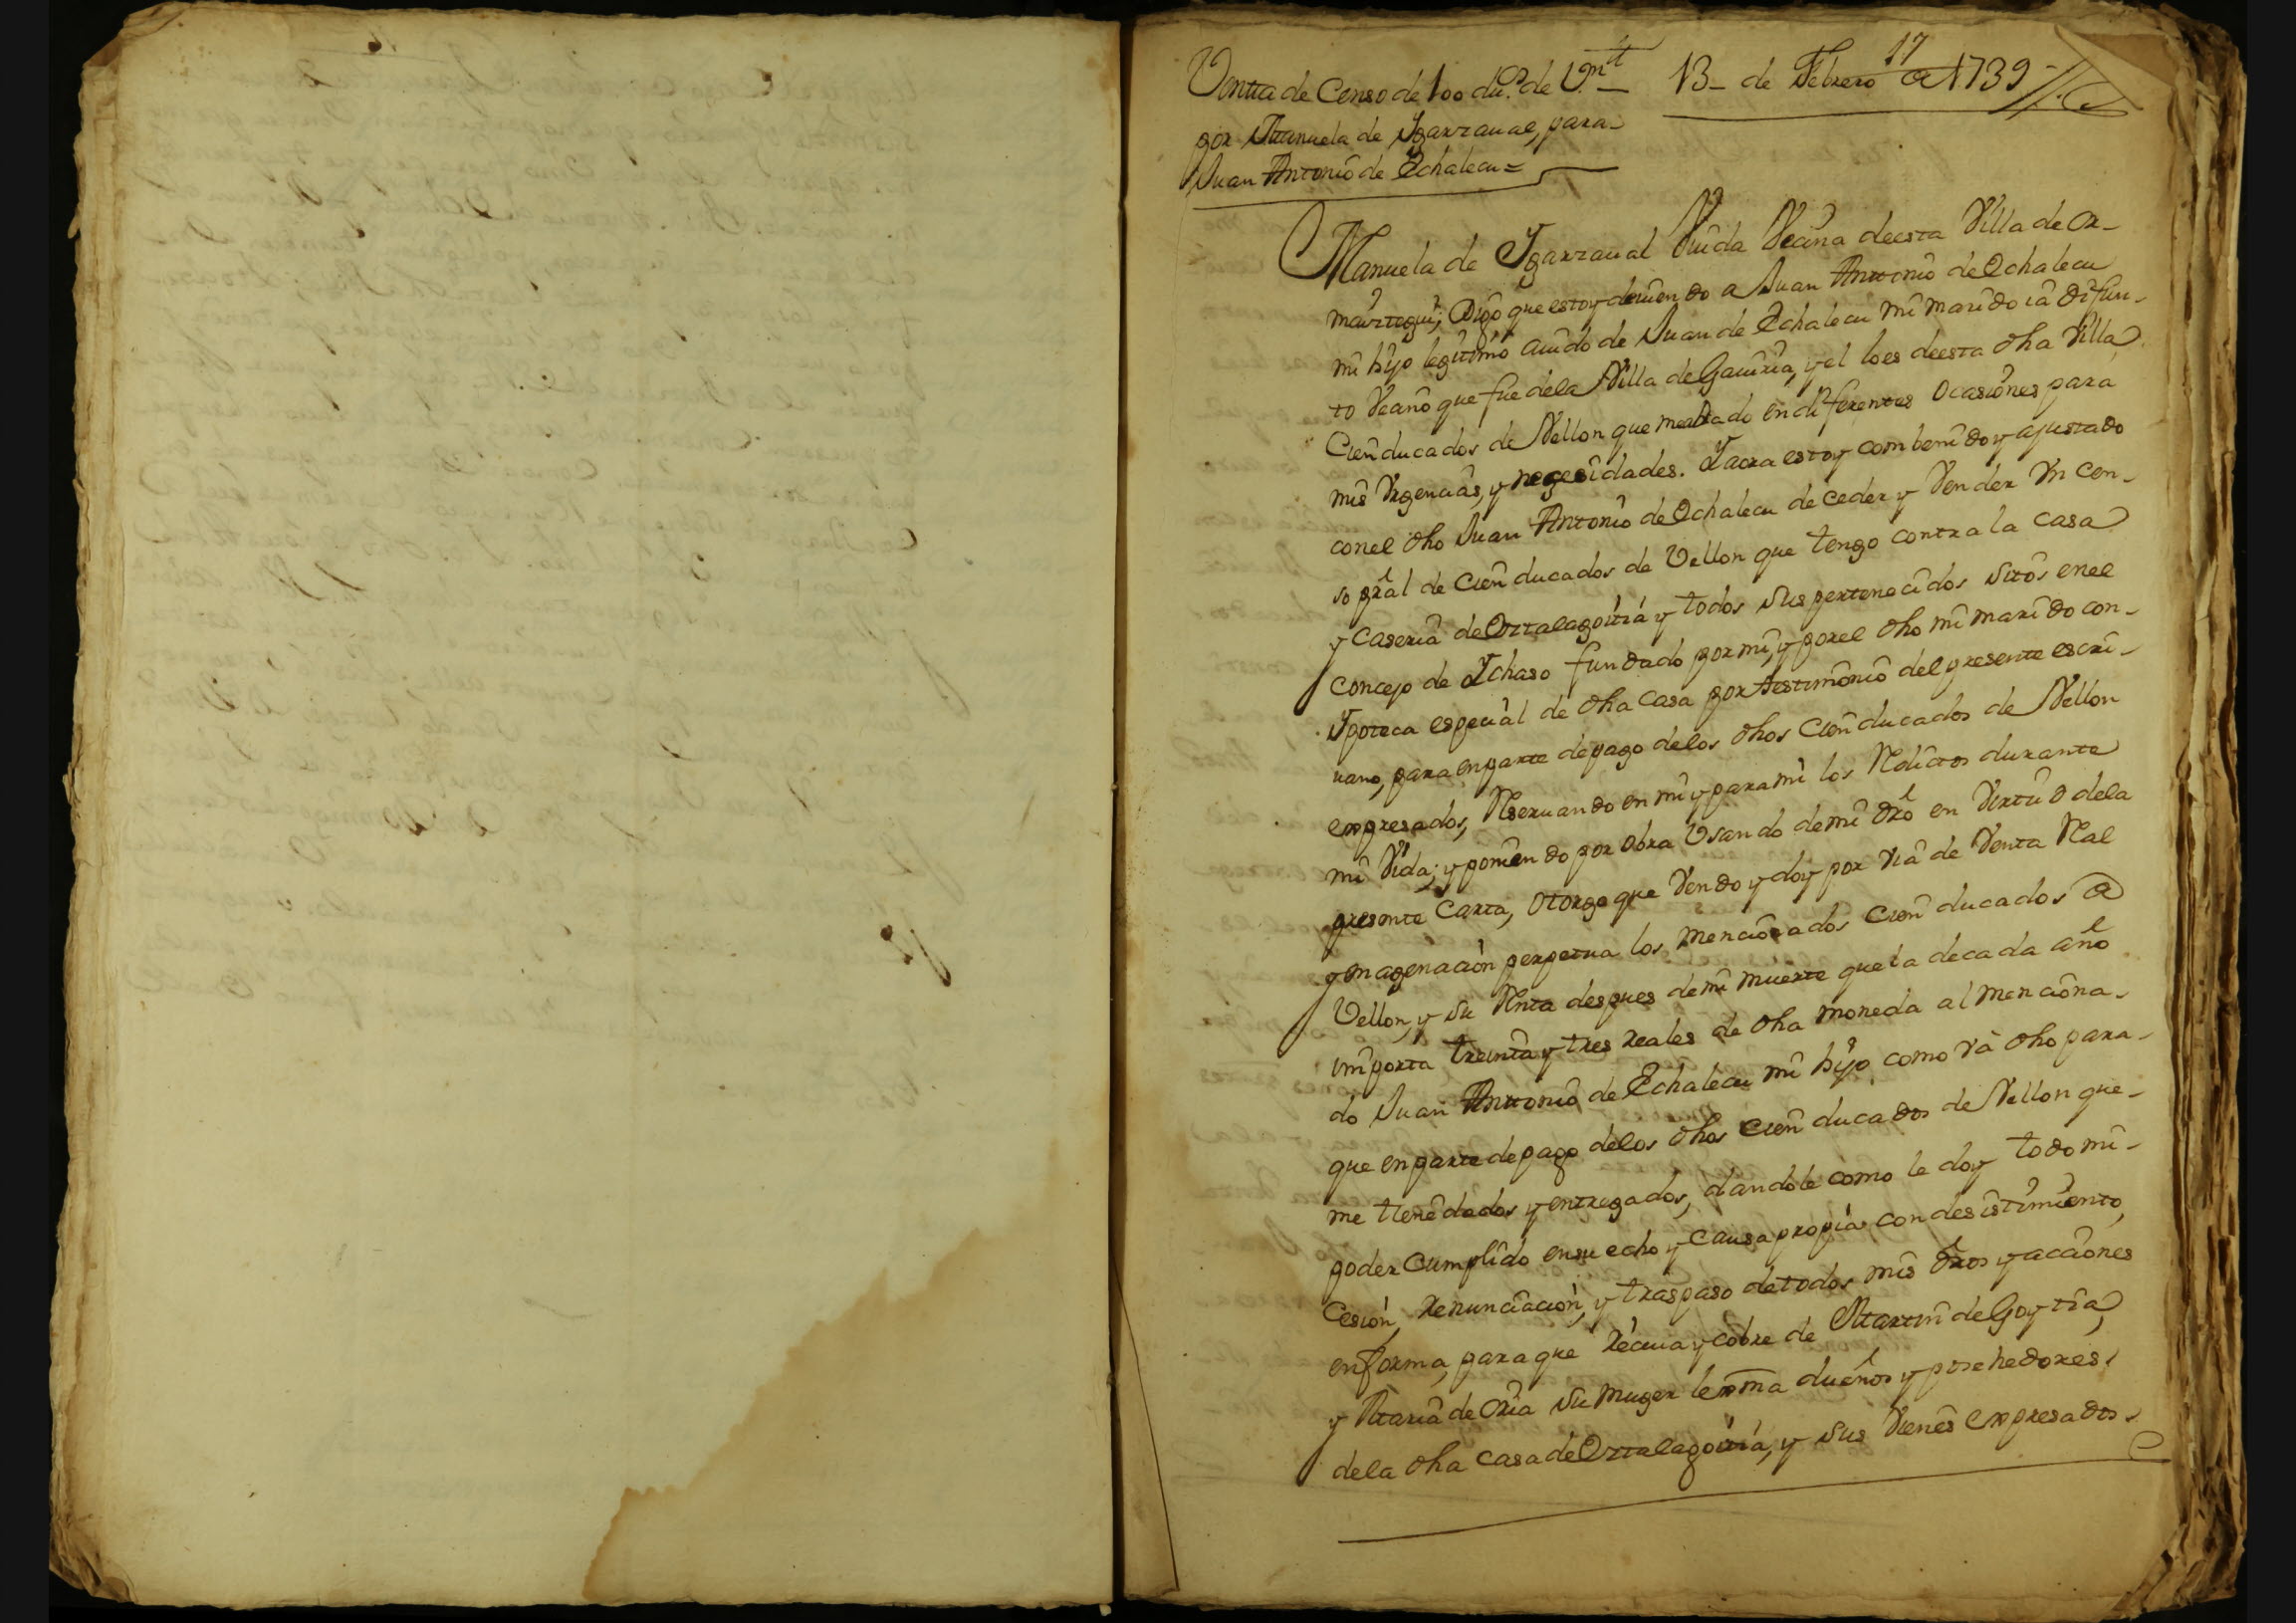 Venta de Censo de 100 du.s de V.on
13 de Febrero de 1739
17
por Manuela de Ygarzaual, para
Juan Antonio de Echalecu =
Manuela de Ygarzaual Viuda Vecina deesta Villa de Or-
maiztegui; Digo que estoy deuiendo a Juan Antonio de Echalecu
mi hijo legitimo auido de Juan de Echalecu mi marido ia difun-
to Vecino que fue dela Villa de Gauiria, y el loes deesta dha Villa
Cien ducados de Vellon que me a dado en diferentes Ocasiones para
mis Vrgencias, y necesidades. Y aora estoy combenido y ajustado
conel dho Juan Antonio de Echalecu de ceder y Vender Vn Cen-
so pral de Cien ducados de Vellon que tengo contra la casa
y caseria de Oztalagoitia y todos sus pertenecidos sitos enel
Concejo de Ychaso fundado por mi, y porel dho mi marido con
Ypoteca especial de dha casa por testimonio del presente escri-
uano, para enparte depago delos dhos Cien ducados de Vellon
expresados, Reseruando en mi y para mi los Reditos durante
mi Vida; y poniendo por obra Vsando de mi dro en Virtud dela
presente Carta, Otorgo que Vendo y doy por via de Venta Real
y enagenacion perpetua los mencionados Cien ducados de
Vellon, y su Renta despues de mi muerte que la de cada año
importa treinta y tres reales de dha moneda al menciona-
do Juan Antonio de Echalecu mi hijo como va dho para
que enparte depago delos dhos Cien ducados de Vellon que
me tiene dados y entregados, dandole como le doy todo mi
poder Cumplido ensu echo y Causa propia con desistimiento,
Cesion, Renunciacion, y traspaso detodos mis dros y acciones
enforma, para que reciua y cobre de Martin de Goytia,
y Maria de Oria su muger lexma dueños y posehedores
dela dha casa de Oztalagoitia, y sus Vienes expresados